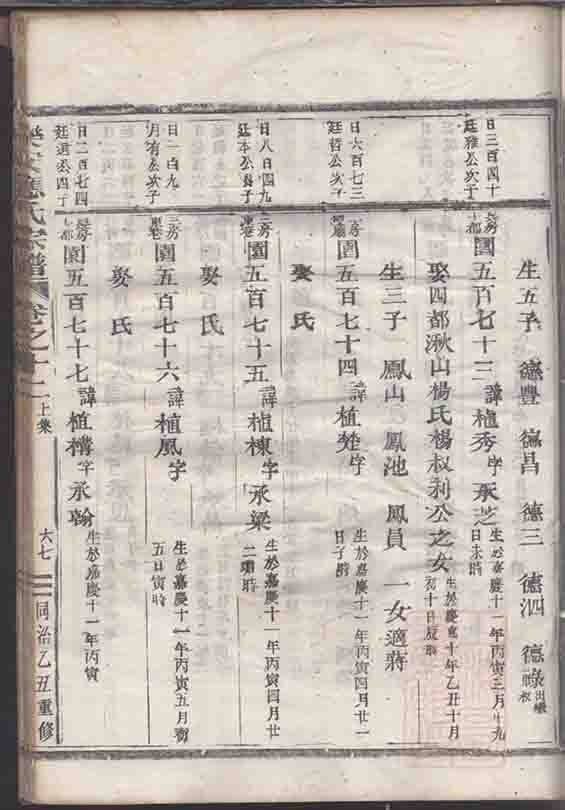 生五子 德豐 德昌 德三 德泗 德祿
日三百四十
廷雅公次子
園五百七十三諱植秀字承芝
生於嘉慶十一年丙寅三月十九
日未時
娶四都湫山楊氏楊叔利公之女
生於嘉慶十年乙丑十月
初十日辰時
生三子 鳳山 鳳池 鳳員 一女適蔣
日六百七三
廷哲公次子
園五百七十四諱植楚字
生於嘉慶十一年丙寅四月廿一
日子時
娶 氏
日八百四九
廷本公長子
園五百七十五諱植棟字承梁
生於嘉慶十一年丙寅四月廿
二 時
娶 氏
日一百九
月有公次子
園五百七十六諱植風字
生於嘉慶十一年丙寅五月初
五日寅時
娶 氏
日二百七四
廷 公四子
園五百七十七諱植構字承翰
生於嘉慶十一年丙寅
氏宗譜 卷之十二上集 六七 同治乙丑重修